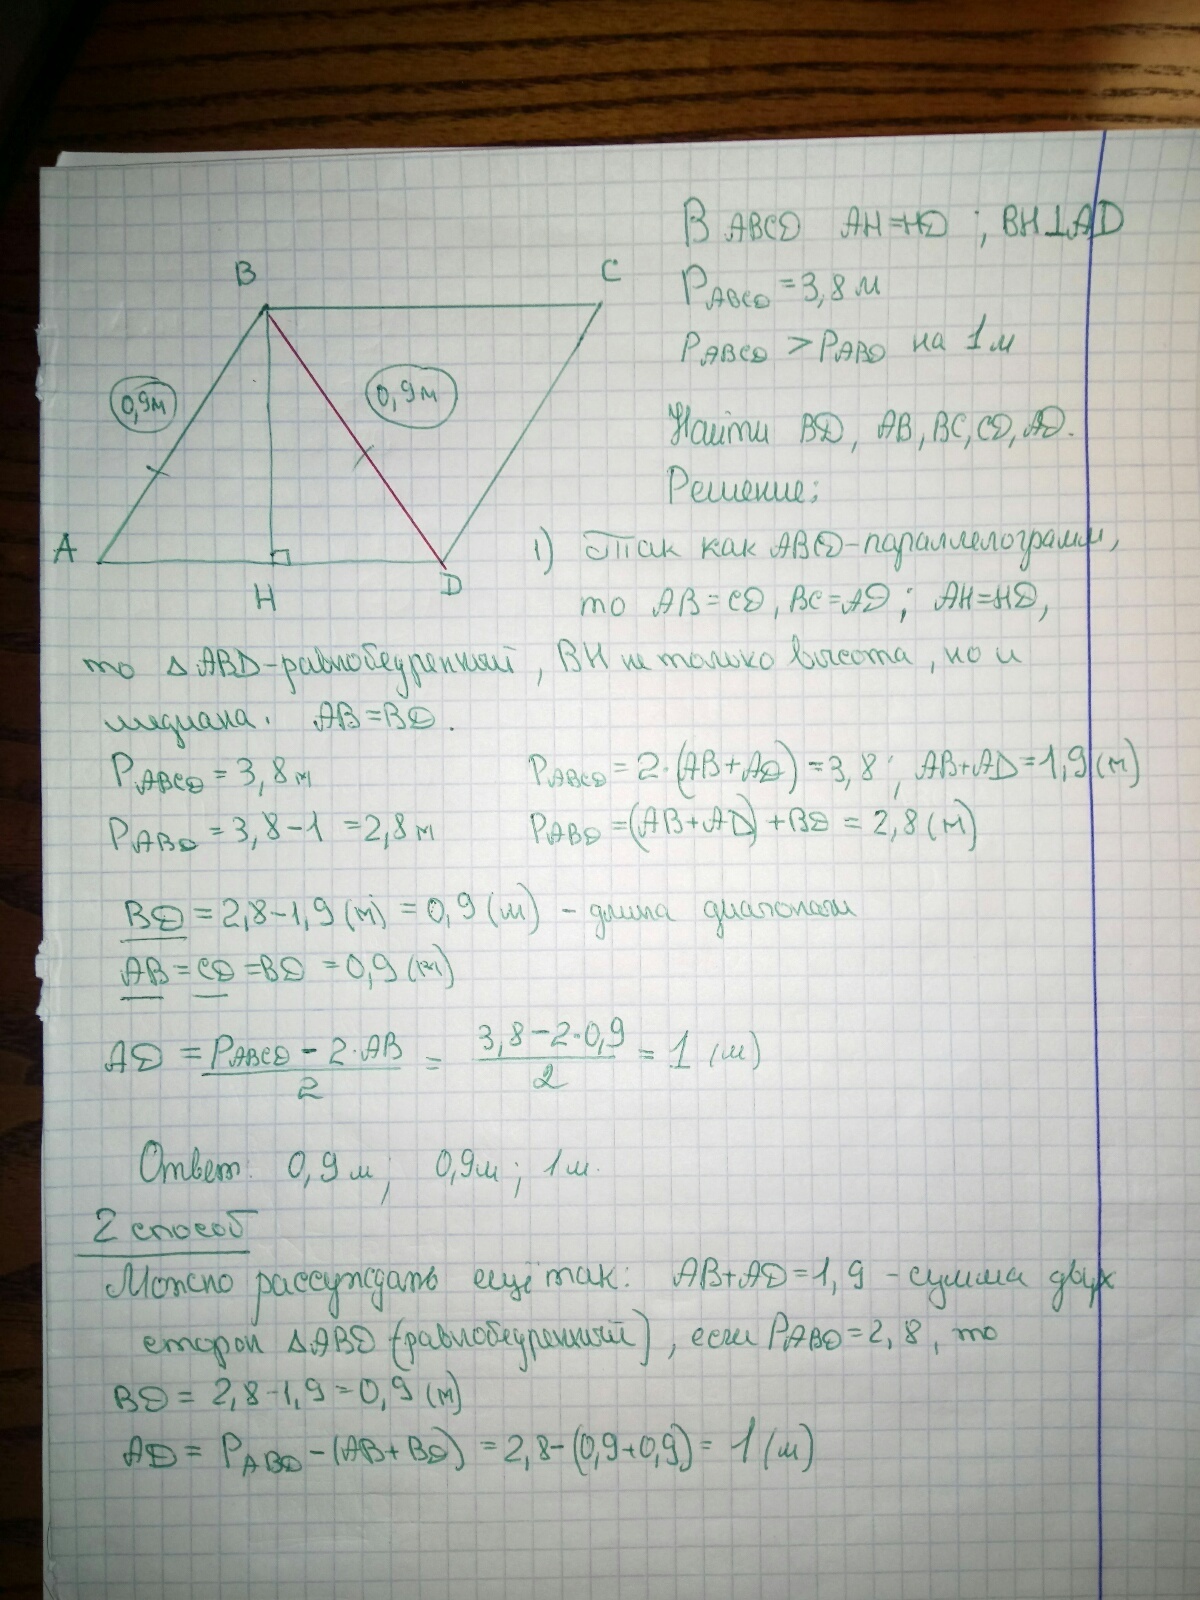 В ABCD AH=HD ; BH⊥AD
B
C
P ABCD = 3,8 м
P ABCD > P ABD на 1 м
0,9м
0,9м
Найти BD, AB, BC, CD, AD.
Решение:
A
H
D
1) Так как ABCD-параллелограмм,
то AB=CD, BC=AD; AH=HD,
то △ABD-равнобедренный, BH не только высота, но и
медиана. AB=BD.
P ABCD = 3,8 м
P ABCD = 2·(AB+AD) = 3,8 ; AB+AD=1,9 (м)
P ABD = 3,8-1 = 2,8 м
P ABD = (AB+AD)+BD = 2,8 (м)
BD = 2,8-1,9 (м) = 0,9 (м) - длина диагонали
AB = CD = BD = 0,9 (м)
AD = P ABCD - 2·AB / 2 = 3,8-2·0,9 / 2 = 1 (м)
Ответ: 0,9 м; 0,9м; 1 м.
2 способ
Можно рассуждать ещё так: AB+AD=1,9 - сумма двух
сторон △ABD (равнобедренный), если P ABD = 2,8, то
BD = 2,8-1,9 = 0,9 (м)
AD = P ABD - (AB+BD) = 2,8-(0,9+0,9) = 1 (м)